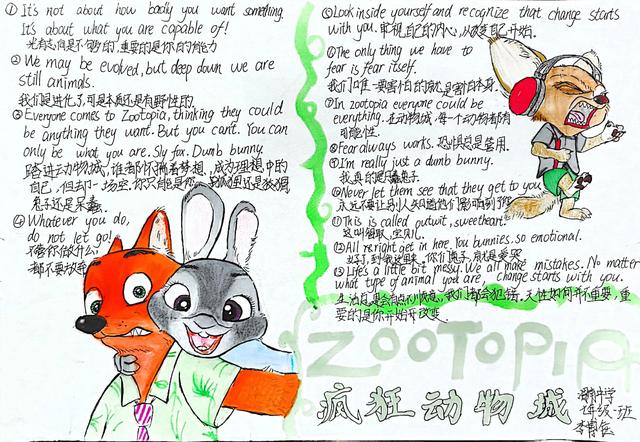 ①It's not about how badly you want something.
It's about what you are capable of!
光有志向是不够的,重要的是你的能力
②We may be evolved, but deep down we are
still animals.
我们是进化了,可是本质还是有野性的.
③Everyone comes to Zootopia, thinking they could
be anything they want. But you can't. You can
only be what you are. Sly fox. Dumb bunny.
踏进动物城,谁都怀揣着梦想,成为理想中的
自己,但却一场空,你只能是你,狐狸还是狡猾,
兔子还是呆蠢.
④Whatever you do,
do not let go!
不管你做什么,
都不要放弃
⑤Look inside yourself and recognize that change starts
with you. 审视自己的内心,从改变自己开始.
⑥The only thing we have to
fear is fear itself.
我们唯一要害怕的就是害怕本身.
⑦In zootopia everyone could be
everything. 在动物城,每个动物都有
可能性.
⑧Fear always works. 恐惧总是管用.
⑨I'm really just a dumb bunny.
我真的是只蠢兔子
⑩Never let them see that they get to you.
永远不要让别人知道他们影响到你
⑪This is called outwit, sweetheart.
这叫智取,宝贝儿.
⑫All right get in here. You bunnies. so emotional.
好了,到我这里来,你们兔子,就是爱哭
⑬Life's a little bit messy. We all make mistakes. No matter
what type of animal you are, change starts with you.
生活总是会有点不顺意,我们都会犯错,天性如何并不重要,重
要的是你开始改变.
ZOOTOPIA
疯狂动物城
中学
七年级一班
李